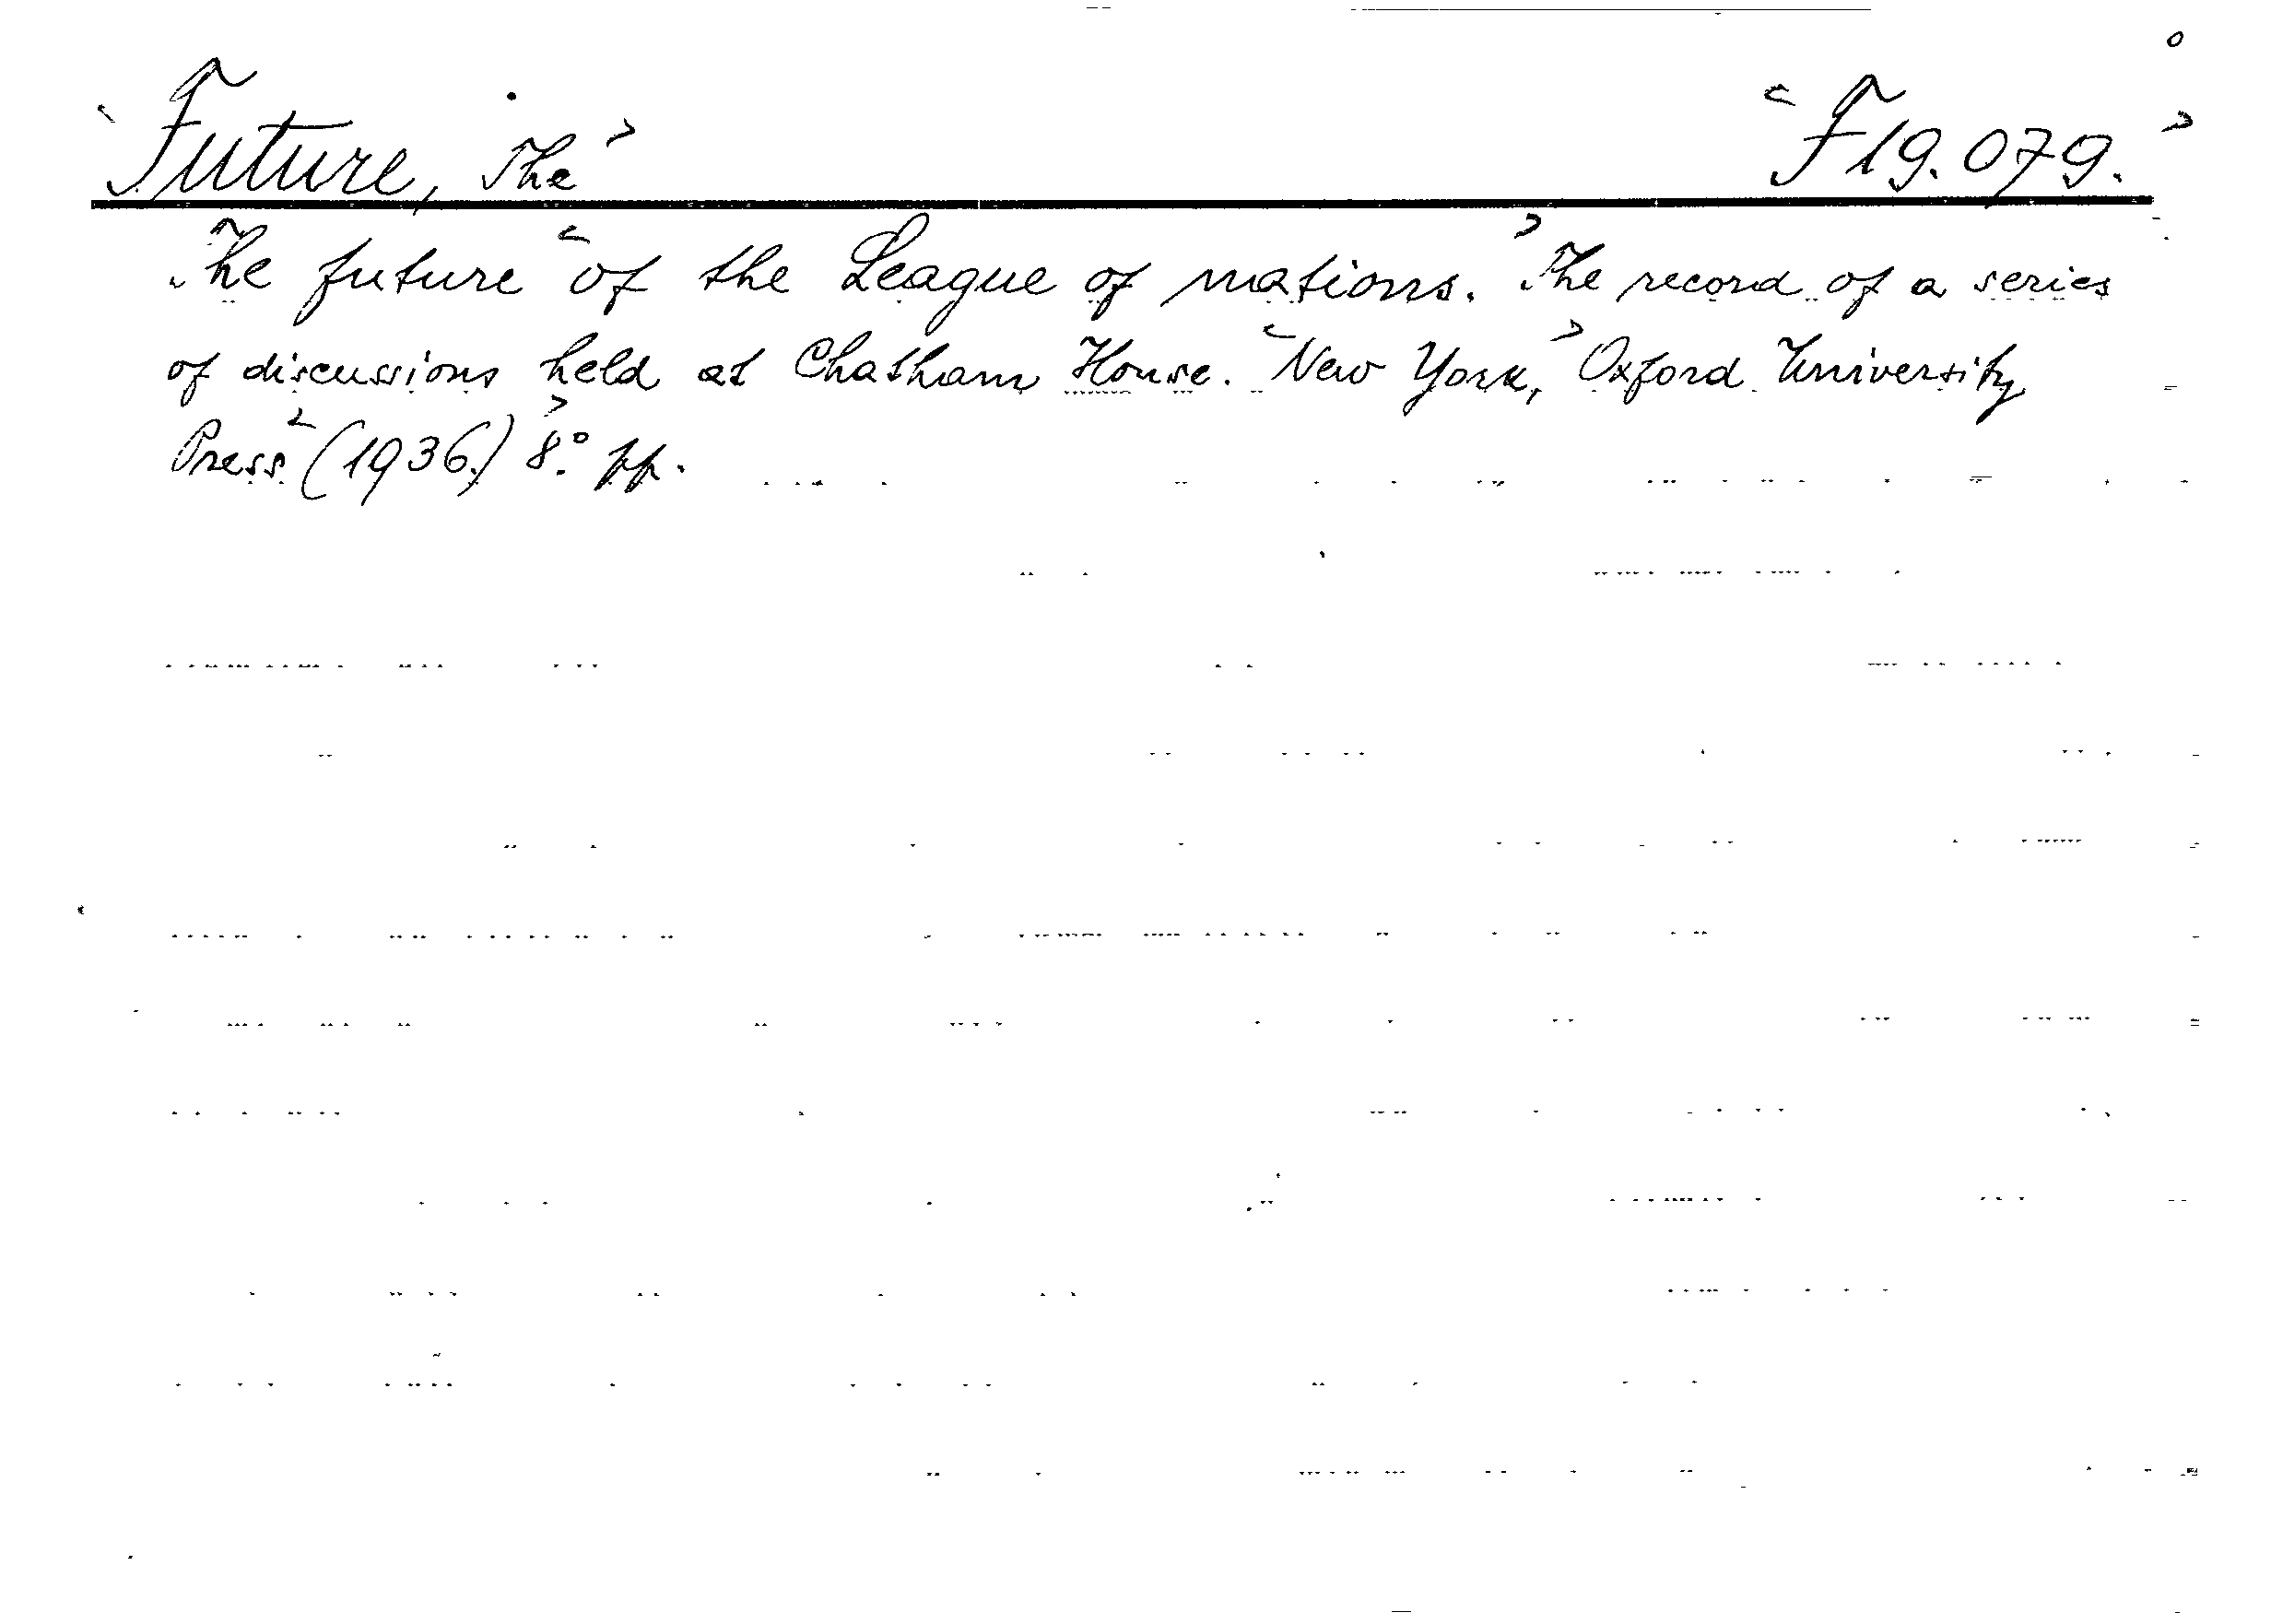 Future, The F19.079.
The future of the League of nations. The record of a series
of discussions held at Chatham House. New York, Oxford University
Press (1936.) 8.° pp.